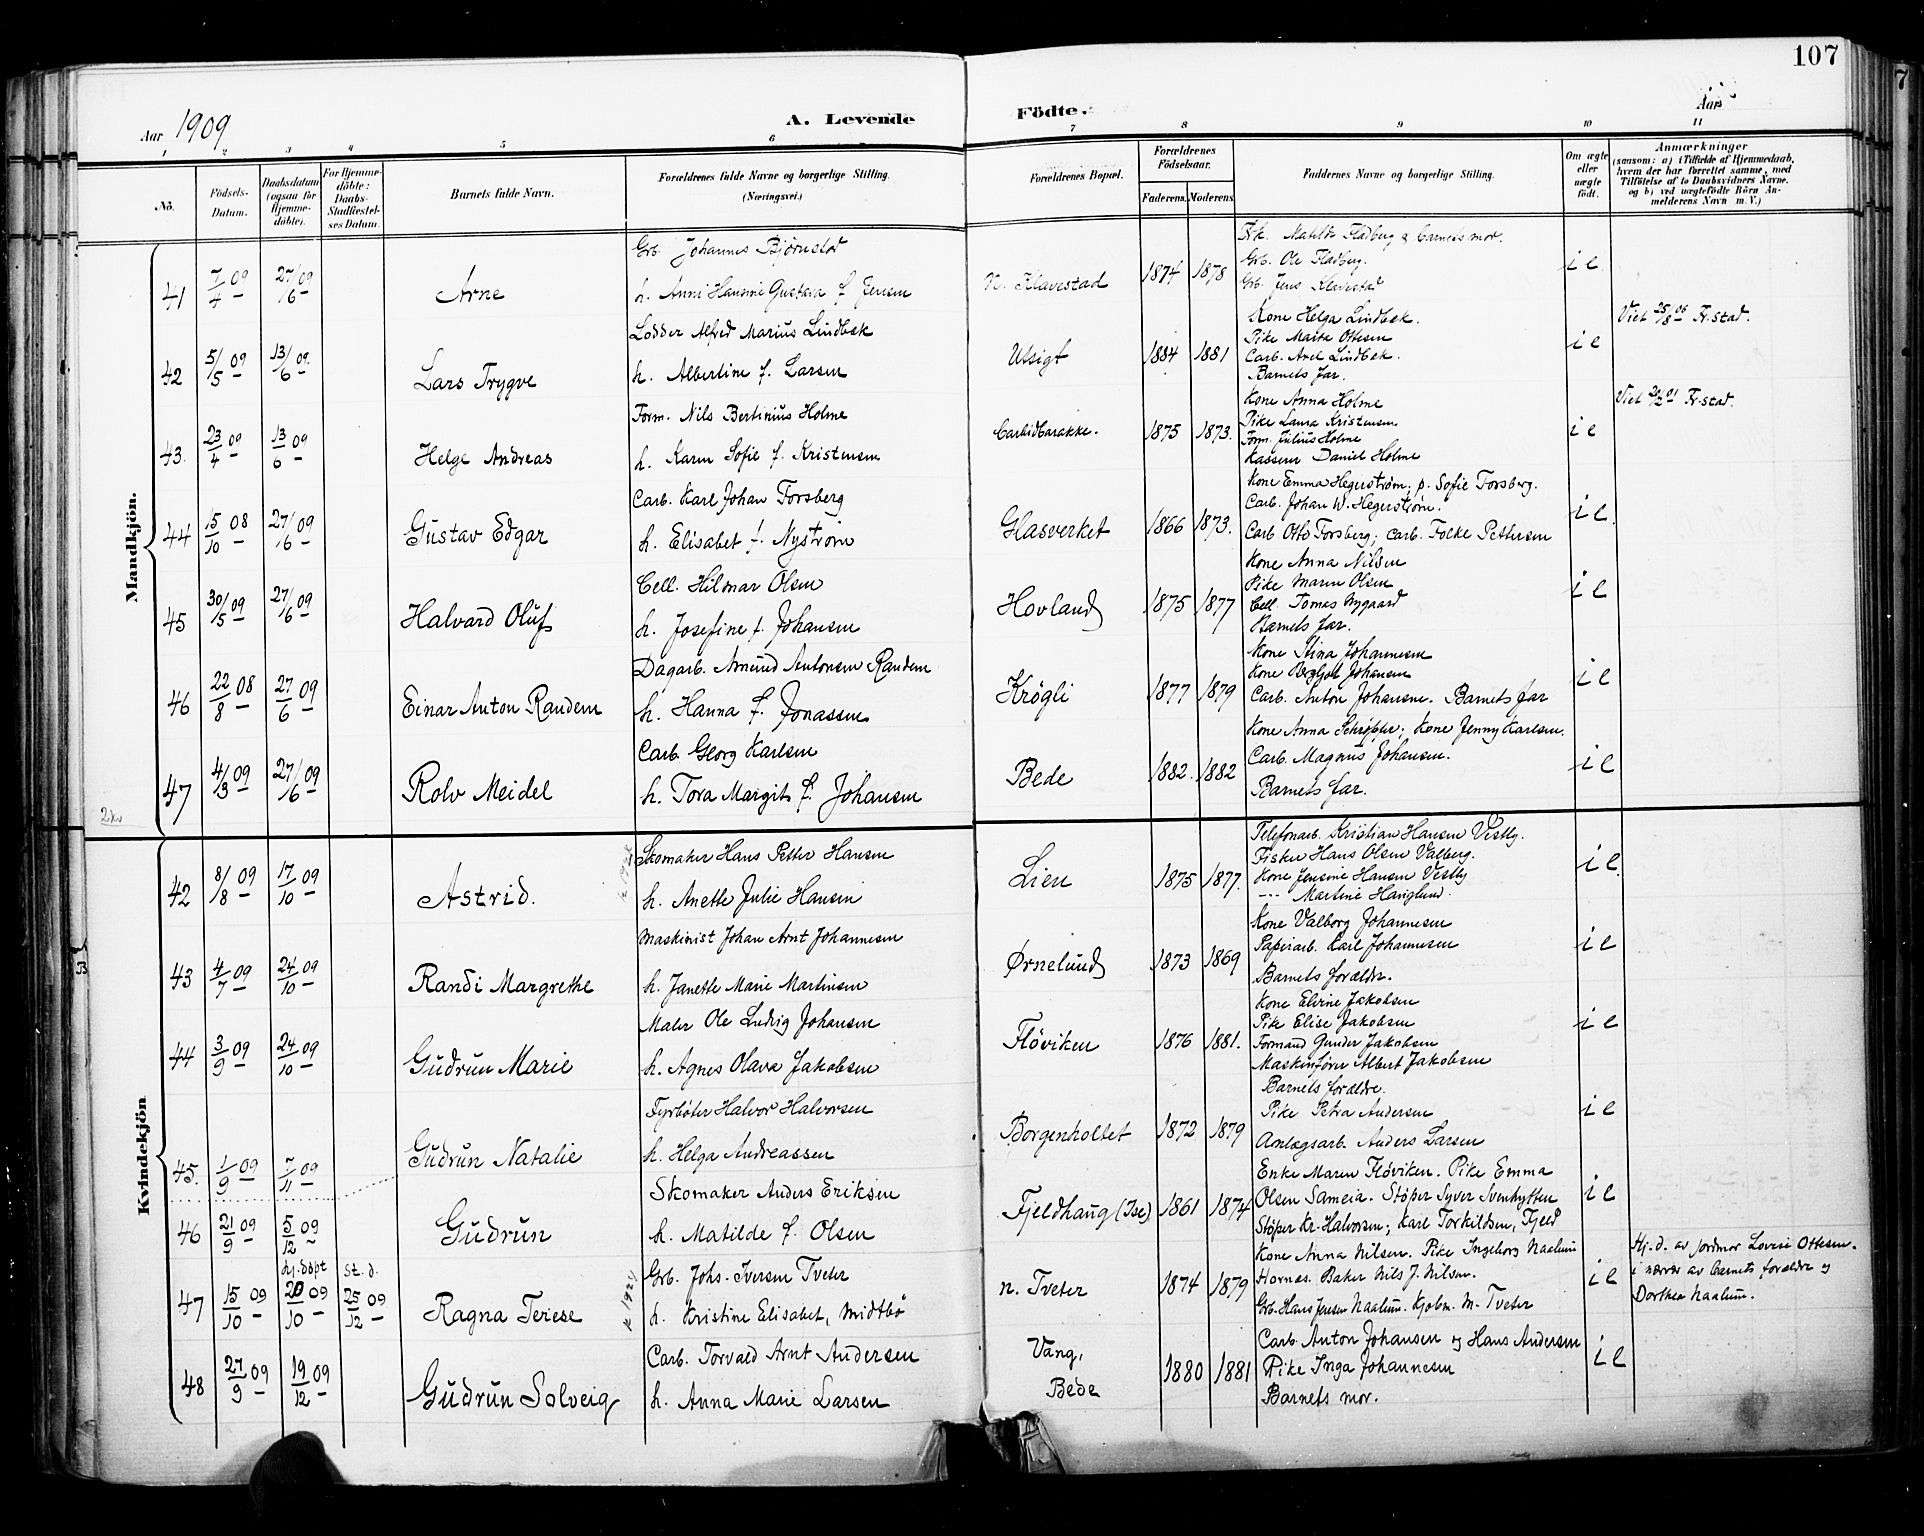 107
7
Aar 1909
A. Levende
Födte.
Aar
1 2 3 4 5 6 7 8 9 10 11
Nö.
Födsels-Datum.
Daabsdatum (ogsaa for Hjemmedöbte).
For Hjemmedöbte: Daabs-Stadfæstelses Datum.
Barnets fulde Navn.
Forældrenes fulde Navne og borgerlige Stilling.
(Næringsvei.)
Forældrenes Bopæl.
Forældrenes Födselsaar.
Faderens. Moderens.
Faddernes Navne og borgerlige Stilling.
Om ægte eller uægte födt.
Anmærkninger
(saasom: a) i Tilfælde af Hjemmedaab, hvem der har forrettet samme, med Tilföielse af to Daabsvidners Navne. og b) ved uægtefödte Börn Anmelderens Navn m. V.)
Mandkjön.
41 7/4 09 27/6 09 Arne
Grb. Johannes Bjørnstad
h. Anni Hansine Gustava f. Jensen
N. Klavestad 1874 1878
Frk. Matilde Fladberg & barnets mor.
Grb. Ole Fladberg.
Grb. Jens Klavestad
i e
42 5/5 09 13/6 09. Lars Trygve
Lodder Alfred Marius Lindbæk
h. Albertine f. Larsen
Utsigt 1884 1881
Kone Helga Lindbæk.
Pike Marta Ottesen
Carb. Axel Lindbæk.
Barnets far.
i e
Viet 25/8 06 Fr.stad.
43. 23/4 09 13/6 09 Helge Andreas
Form. Nils Bertinius Holme
h. Karen Sofie f. Kristensen
Carbidbarakke. 1875 1873.
Kone Anna Holme
Pike Laura Kristensen
Form. Julius Holme
Kasserer Daniel Holme
i e
Viet Fr.stad.
44 15/10 08 27/6 09 Gustav Edgar
Carb. Karl Johan Forsberg
h. Elisabet f. Nystrøm
Glasverket 1866 1873.
Kone Emma Hegerstrøm. p. Sofie Forsberg.
Carb. Johan W. Hegerstrøm.
Carb Otto Forsberg; Carb. Folke Pettersen
i e.
45 30/5 09 27/6 09 Halvard Oluf
Cell. Hilmar Olsen
h. Josefine f. Johansen
Hovland 1875 1877
Kone Anna Nilsen
Pike Maren Olsen
Cell. Tomas Nygaard
Barnets far.
i e
46 22/8 08 27/6 09 Einar Anton Randem
Dagarb. Amund Antonsen Randem
h. Hanna f. Jonassen
Krøgli 1877 1879
Kone Stina Johannesen
Kone Bergljot Johansen
Carb. Anton Johansne. Barnets far
i e
47 4/3 09 27/6 09 Rolv Meidel
Carb. Georg Karlsen
h. Tora Margit f. Johansen
Bede 1882. 1882
Kone Anna Schrøpfer; Kone Jenny Karlsen.
Carb. Magnus Johansen.
Barnets far.
i e
Kvindekjön
42 8/8 09 17/10 09 Astrid.
Skomaker Hans Petter Hansen
h. Anette Julie Hansen
Lien 1875 1877.
Telefonarb. Kristian Hansen Vestby.
Fisker Hans Olsen Valberg.
Kone Jensine Hansen Vestby
--- Martine Hauglund.
i e
43 4/7 09 24/10 09 Randi Margrethe
Maskinist Johan Arnt Johannesen
h. Janette Marie Martinsen
Ørnelund 1873 1869
Kone Valborg Johannesen
Papirarb. Karl Johannesen
Barnets forældr.
i e
44 3/9 09 24/10 09 Gudrun Marie
Maler Ole Ludvig Johansen
h. Agnes Olava Jakobsen
Fløviken 1876 1881.
Kone Elvine Jakobsen
Pike Elise Jakobsen
Formand Gunder Jakobsen
Maskinfører Albert Jakobsen
Barnets forældre.
i e
45. 1/9 09 7/11 09 Gudrun Natalie
Fyrbøter Halvor Halvorsen
h. Helga Andreassen
Borgenholtet 1872 1879
Pike Petra Andersen
Anlægsarb. Anders Larsen
i e
46 21/9 09 5/12 09 Gudrun
Skomaker Anders Eriksen
h. Matilde f. Olsen
Fjeldhaug (Ise) 1861 1874
Enke Maren Fløviken. Pike Emma
Olsen Sameia. Støper Syver Svenhytten
Støper Kr. Halvorsen; Karl Torkildsen, Fjeld
i e
47 15/10 09 hj. døpt 20/10 09 st. d. 25/12 09 Ragna Terese
Grb. Johs. Iversen Tveter
h. Kristine Elisabet, Midtbø
n. Tveter 1874 1879
Kone Anna Nilsen. Pike Ingeborg Naalum
Hornæs. Baker Nils J. Nilsen.
Grb. Hans Jensen Naalum. Kjøbm. M. Tveter
i e
Hj. d. av jordmor Lovise Ottesen.
i nærvær av barnets forældre og
Dorthea Naalum.
48 27/9 09 19/12 09 Gudrun Solveig
Carb. Torvald Arnt Andersen
h. Anna Marie Larsen
Vang,
Bede 1880 1881
Carb. Anton Johansen og Hans Andersen
Pike Inga Johannesen
Barnets mor.
i e